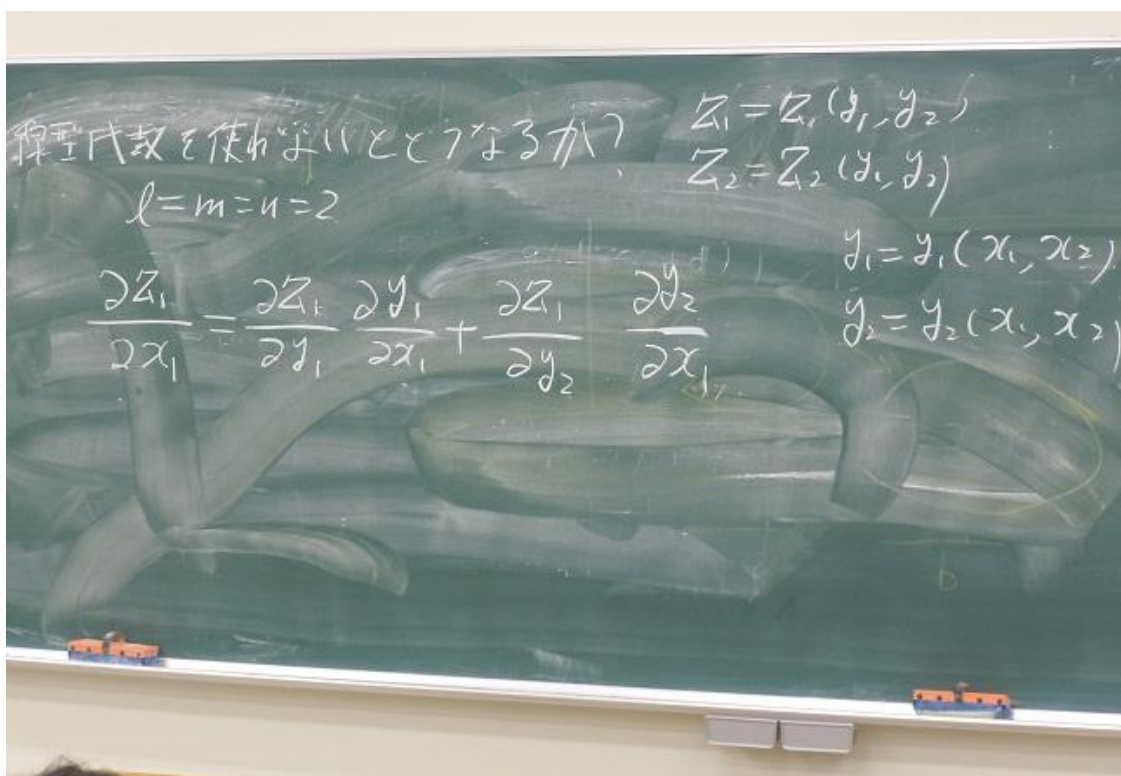 線型代数を使わないとどうなるか?
l=m=n=2
∂z₁/∂x₁ = ∂z₁/∂y₁ ∂y₁/∂x₁ + ∂z₁/∂y₂ ∂y₂/∂x₁
z₁=z₁(y₁,y₂)
z₂=z₂(y₁,y₂)
y₁=y₁(x₁,x₂)
y₂=y₂(x₁,x₂)